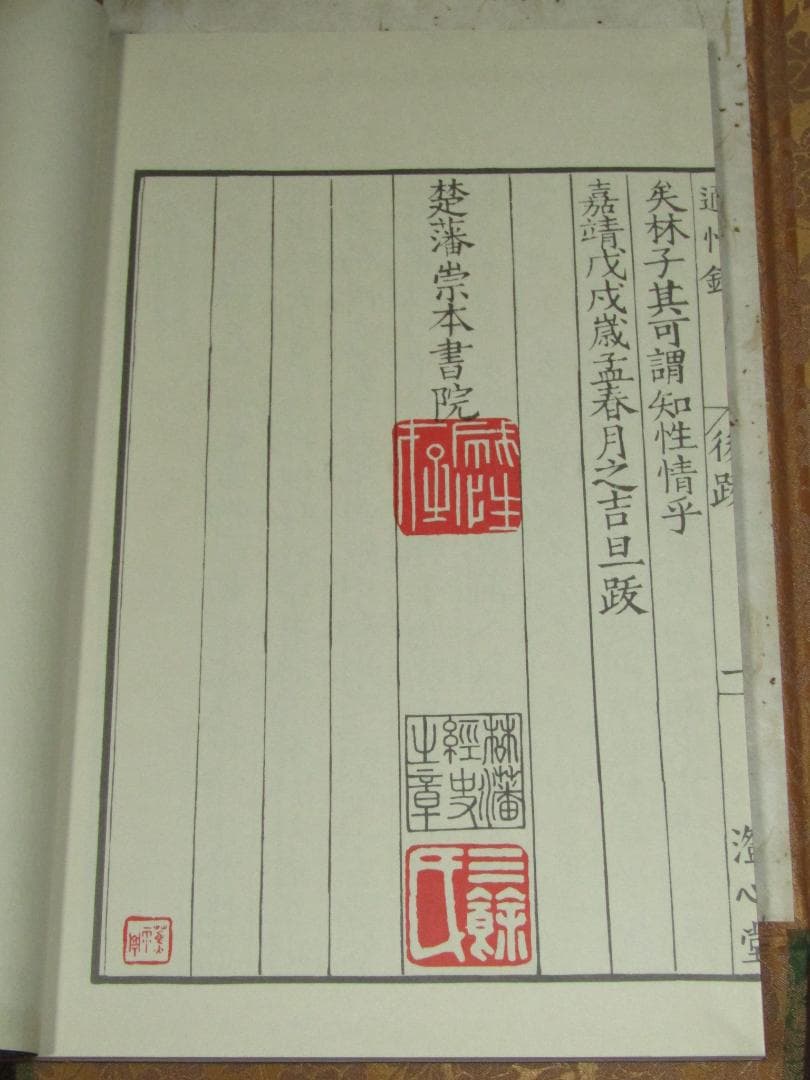 適情錄
後跋
一
澄心堂
矣林子其可謂知性情乎
嘉靖戊戌歲孟春月之吉旦跋
楚藩崇本書院
楚藩
經史
之章
三餘
氏